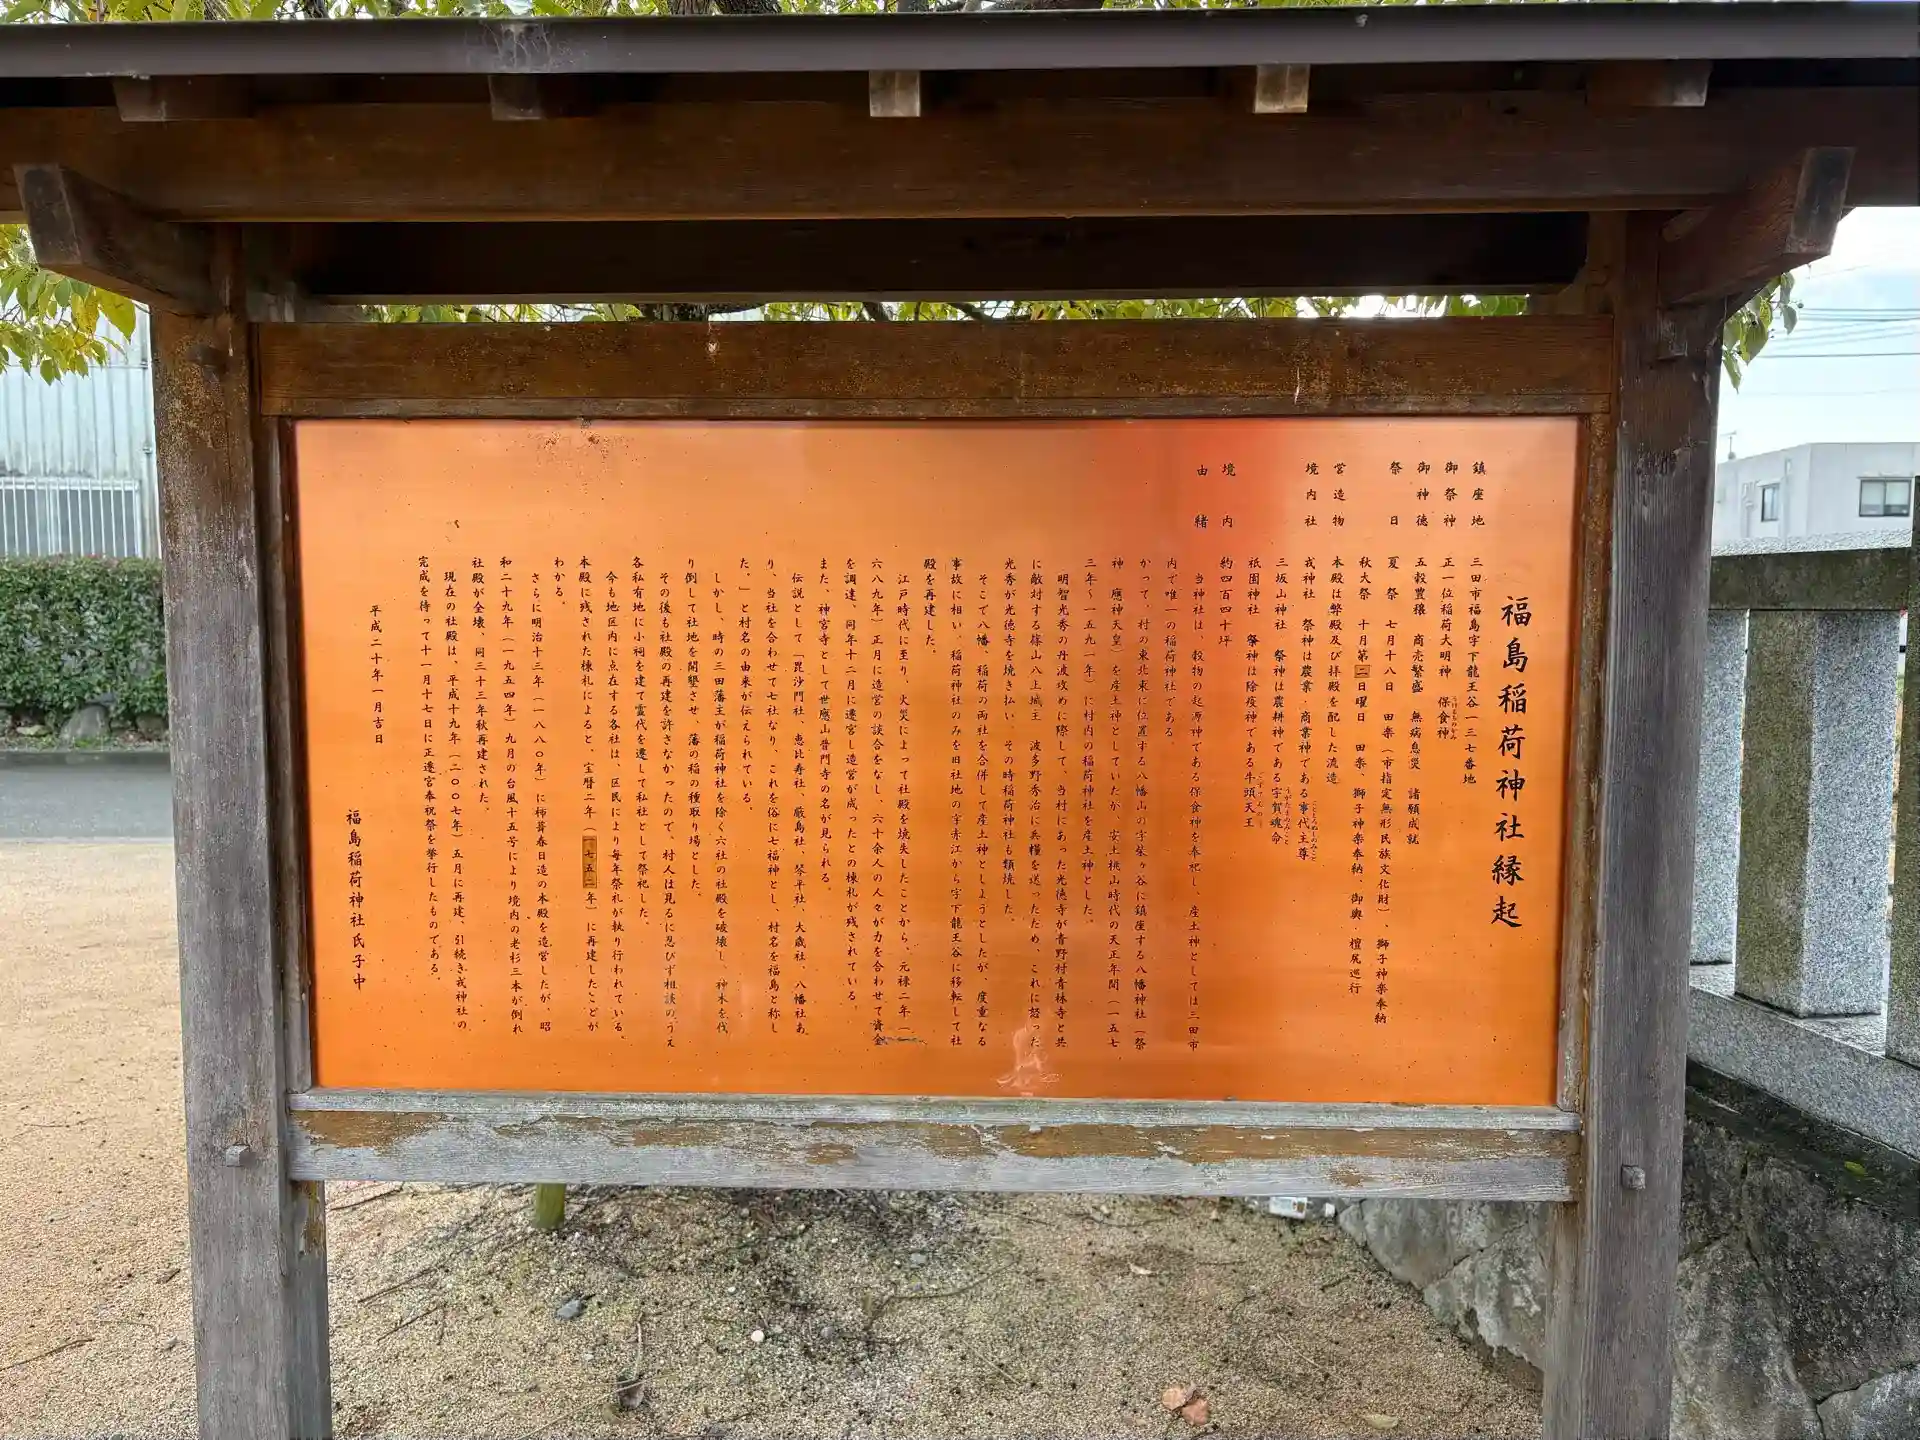 福島稲荷神社縁起
鎮座地　三田市福島字下龍王谷一三七番地
御祭神　正一位稲荷大明神　保食神
御神徳　五穀豊穣　商売繁盛　無病息災　諸願成就
祭日　夏祭　七月十八日　田楽（市指定無形民族文化財）、獅子神楽奉納
秋大祭　十月第二日曜日　田楽、獅子神楽奉納、御輿、檀尻巡行
営造物　本殿は弊殿及び拝殿を配した流造
境内社　戎神社　祭神は農業・商業神である事代主尊
三坂山神社　祭神は農耕神である宇賀魂命
祇園神社　祭神は除疫神である牛頭天王
境内　約四百四十坪
由緒　当神社は、穀物の起源神である保食神を奉祀し、産土神としては三田市
内で唯一の稲荷神社である。
かつて、村の東北東に位置する八幡山の字柴ヶ谷に鎮座する八幡神社（祭
神　應神天皇）を産土神としていたが、安土桃山時代の天正年間（一五七
三年～一五九一年）に村内の稲荷神社を産土神とした。
明智光秀の丹波攻めに際して、当村にあった光徳寺が青野村青林寺と共
に敵対する篠山八上城主　波多野秀治に兵糧を送ったため、これに怒った
光秀が光徳寺を焼き払い、その時稲荷神社も類焼した。
そこで八幡、稲荷の両社を合併して産土神としようとしたが、度重なる
事故に相い、稲荷神社のみを旧社地の字赤江から字下龍王谷に移転して社
殿を再建した。
江戸時代に至り、火災によって社殿を焼失したことから、元禄二年（一
六八九年）正月に造営の談合をなし、六十余人の人々が力を合わせて資金
を調達、同年十二月に遷宮し造営が成ったとの棟札が残されている。
また、神宮寺として世應山普門寺の名が見られる。
伝説として「毘沙門社、恵比寿社、厳島社、琴平社、大歳社、八幡社あ
り、当社を合わせて七社なり、これを俗に七福神とし、村名を福島と称し
た。」と村名の由来が伝えられている。
しかし、時の三田藩主が稲荷神社を除く六社の社殿を破壊し、神木を伐
り倒して社地を開墾させ、藩の稲の種取り場とした。
その後も社殿の再建を許さなかったので、村人は見るに忍びず相談のうえ
各私有地に小祠を建て霊代を遷して私社として祭祀した。
今も地区内に点在する各社は、区民により毎年祭礼が執り行われている。
本殿に残された棟札によると、宝暦二年（一七五二年）に再建したことが
わかる。
さらに明治十三年（一八八〇年）に柿葺春日造の本殿を造営したが、昭
和二十九年（一九五四年）九月の台風十五号により境内の老杉三本が倒れ
社殿が全壊、同三十三年秋再建された。
現在の社殿は、平成十九年（二〇〇七年）五月に再建、引続き戎神社の
完成を待って十一月十七日に正遷宮奉祝祭を挙行したものである。
平成二十年一月吉日
福島稲荷神社氏子中